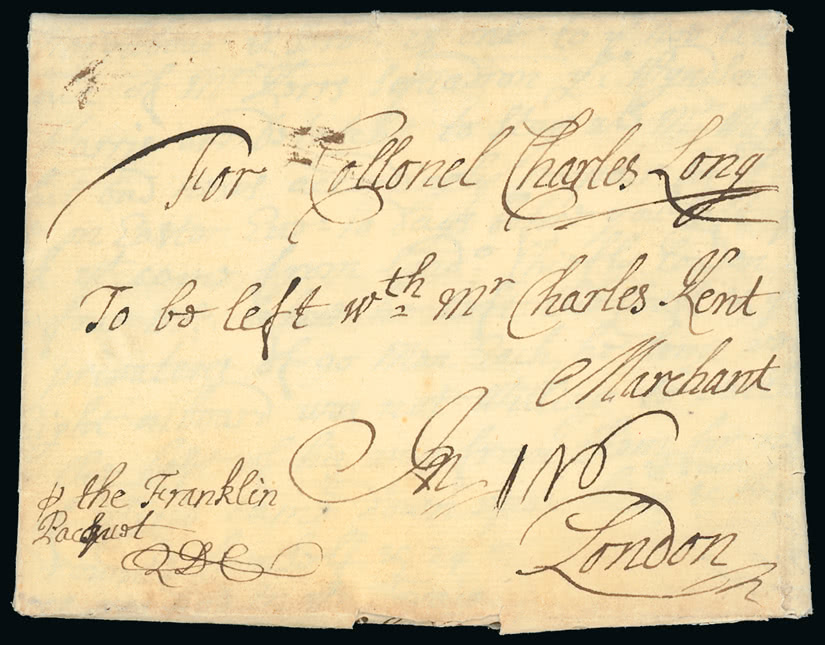 For Collonel Charles Long
To be left wth Mr Charles Kent
Marchant
In
London
⅌ the Franklin
Pacquet
QDC